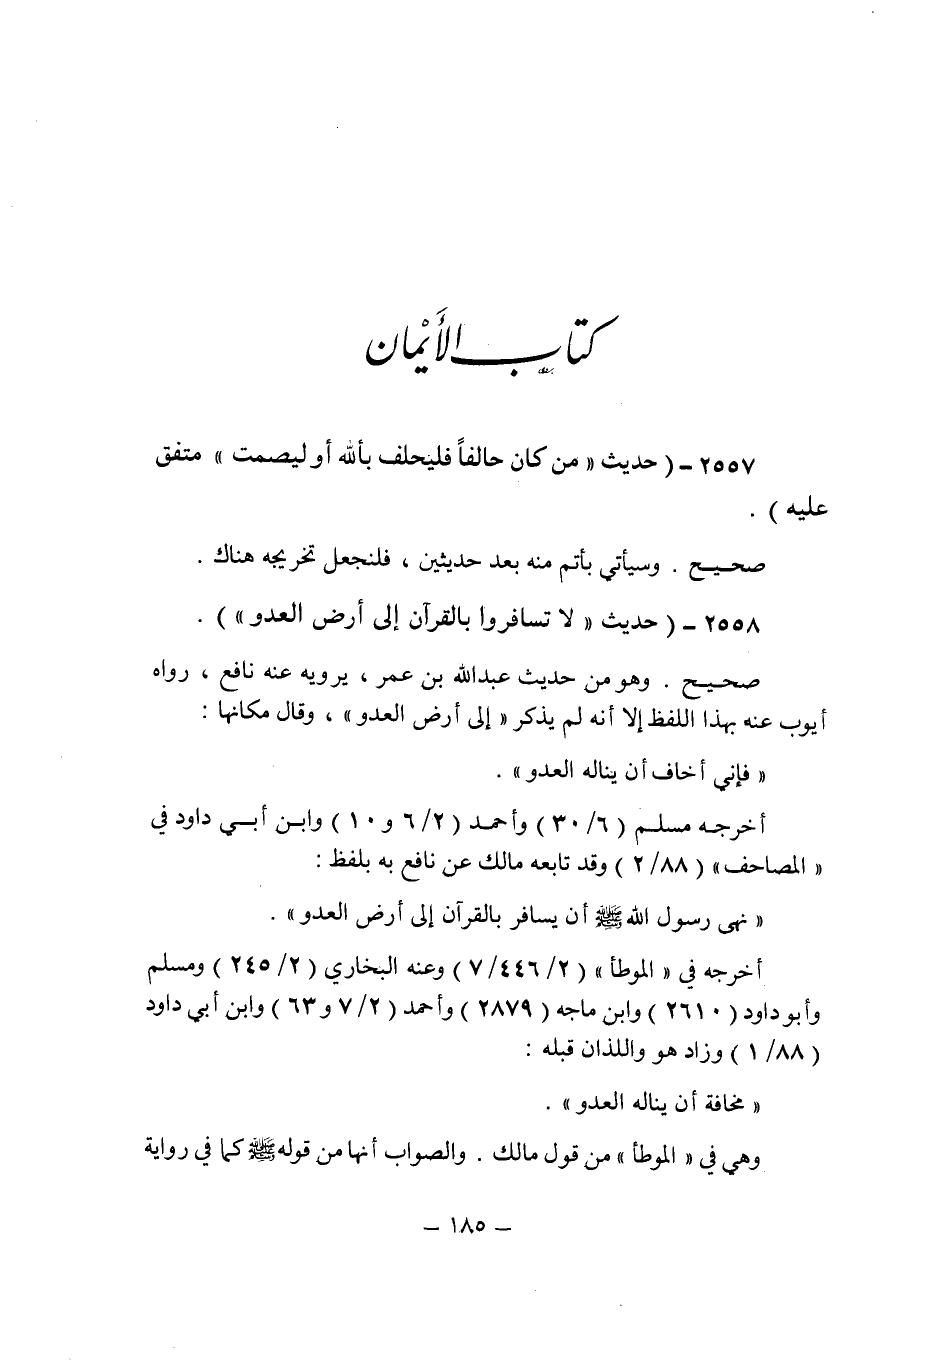 كتاب الأَيْمان
٢٥٥٧ - ( حديث « من كان حالفاً فليحلف بألله أو ليصمت » متفق
عليه ) .
صحـيـح . وسيأتي بأتم منه بعد حديثين ، فلنجعل تخريجه هناك .
٢٥٥٨ - ( حديث « لا تسافروا بالقرآن إلى أرض العدو » ) .
صحـيـح . وهو من حديث عبدالله بن عمر ، يرويه عنه نافع ، رواه
أيوب عنه بهذا اللفظ إلا أنه لم يذكر « إلى أرض العدو » ، وقال مكانها :
« فإني أخاف أن يناله العدو » .
أخرجـه مسلـم ( ٦/ ٣٠ ) وأحمـد ( ٢/ ٦ و ١٠ ) وابـن أبـي داود في
« المصاحف » ( ٨٨/ ٢ ) وقد تابعه مالك عن نافع به بلفظ :
« نهى رسول الله ﷺ أن يسافر بالقرآن إلى أرض العدو » .
أخرجه في « الموطأ » ( ٢/ ٤٤٦/ ٧ ) وعنه البخاري ( ٢/ ٢٤٥ ) ومسلم
وأبو داود ( ٢٦١٠ ) وابن ماجه ( ٢٨٧٩ ) وأحمد ( ٢/ ٧ و ٦٣ ) وابن أبي داود
( ٨٨/ ١ ) وزاد هو واللذان قبله :
« مخافة أن يناله العدو » .
وهي في « الموطأ » من قول مالك . والصواب أنها من قوله ﷺ كما في رواية
– ١٨٥ –